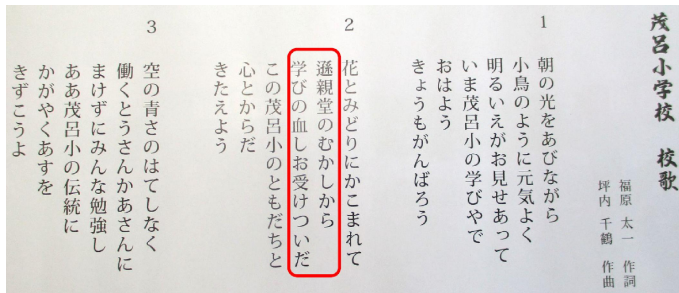 茂呂小学校 校歌
福原 太一 作詞
坪内 千鶴 作曲
1
朝の光をあびながら
小鳥のように元気よく
明るいえがお見せあって
いま茂呂小の学びやで
おはよう
きょうもがんばろう
2
花とみどりにかこまれて
遜親堂のむかしから
学びの血しお受けついだ
この茂呂小のともだちと
心とからだ
きたえよう
3
空の青さのはてしなく
働くとうさんかあさんに
まけずにみんな勉強し
ああ茂呂小の伝統に
かがやくあすを
きずこうよ